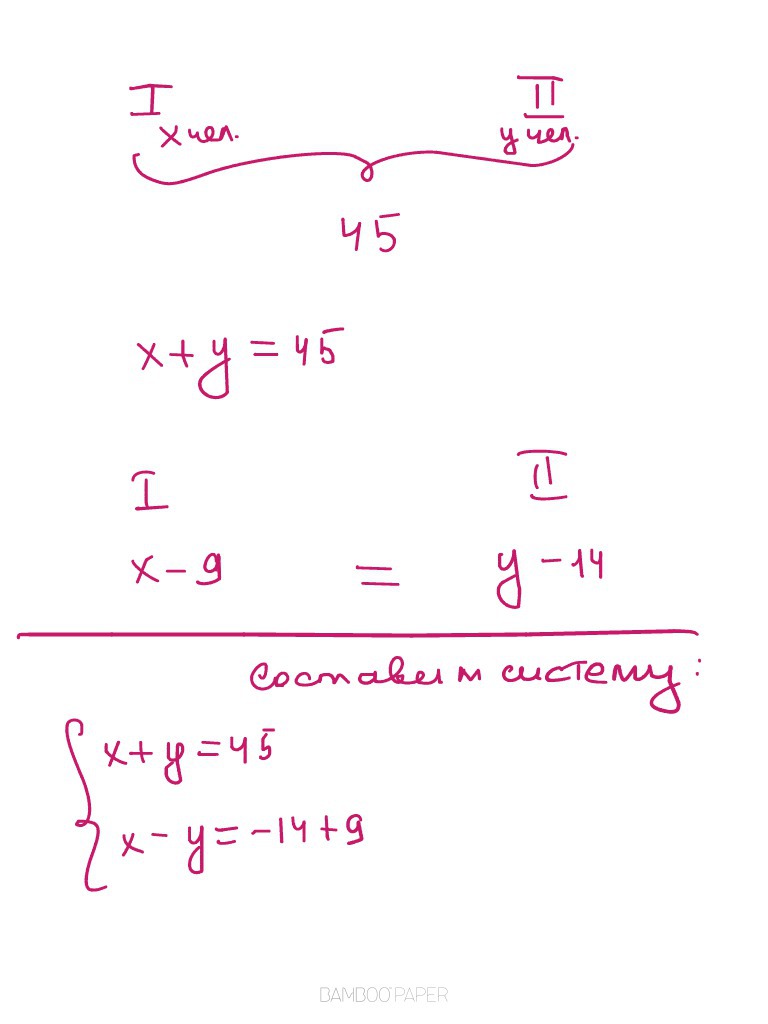 I II
x чел. y чел.
45
x + y = 45
I II
x - 9 = y - 14
Составим систему:
x + y = 45
x - y = -14 + 9
BAMBOO PAPER